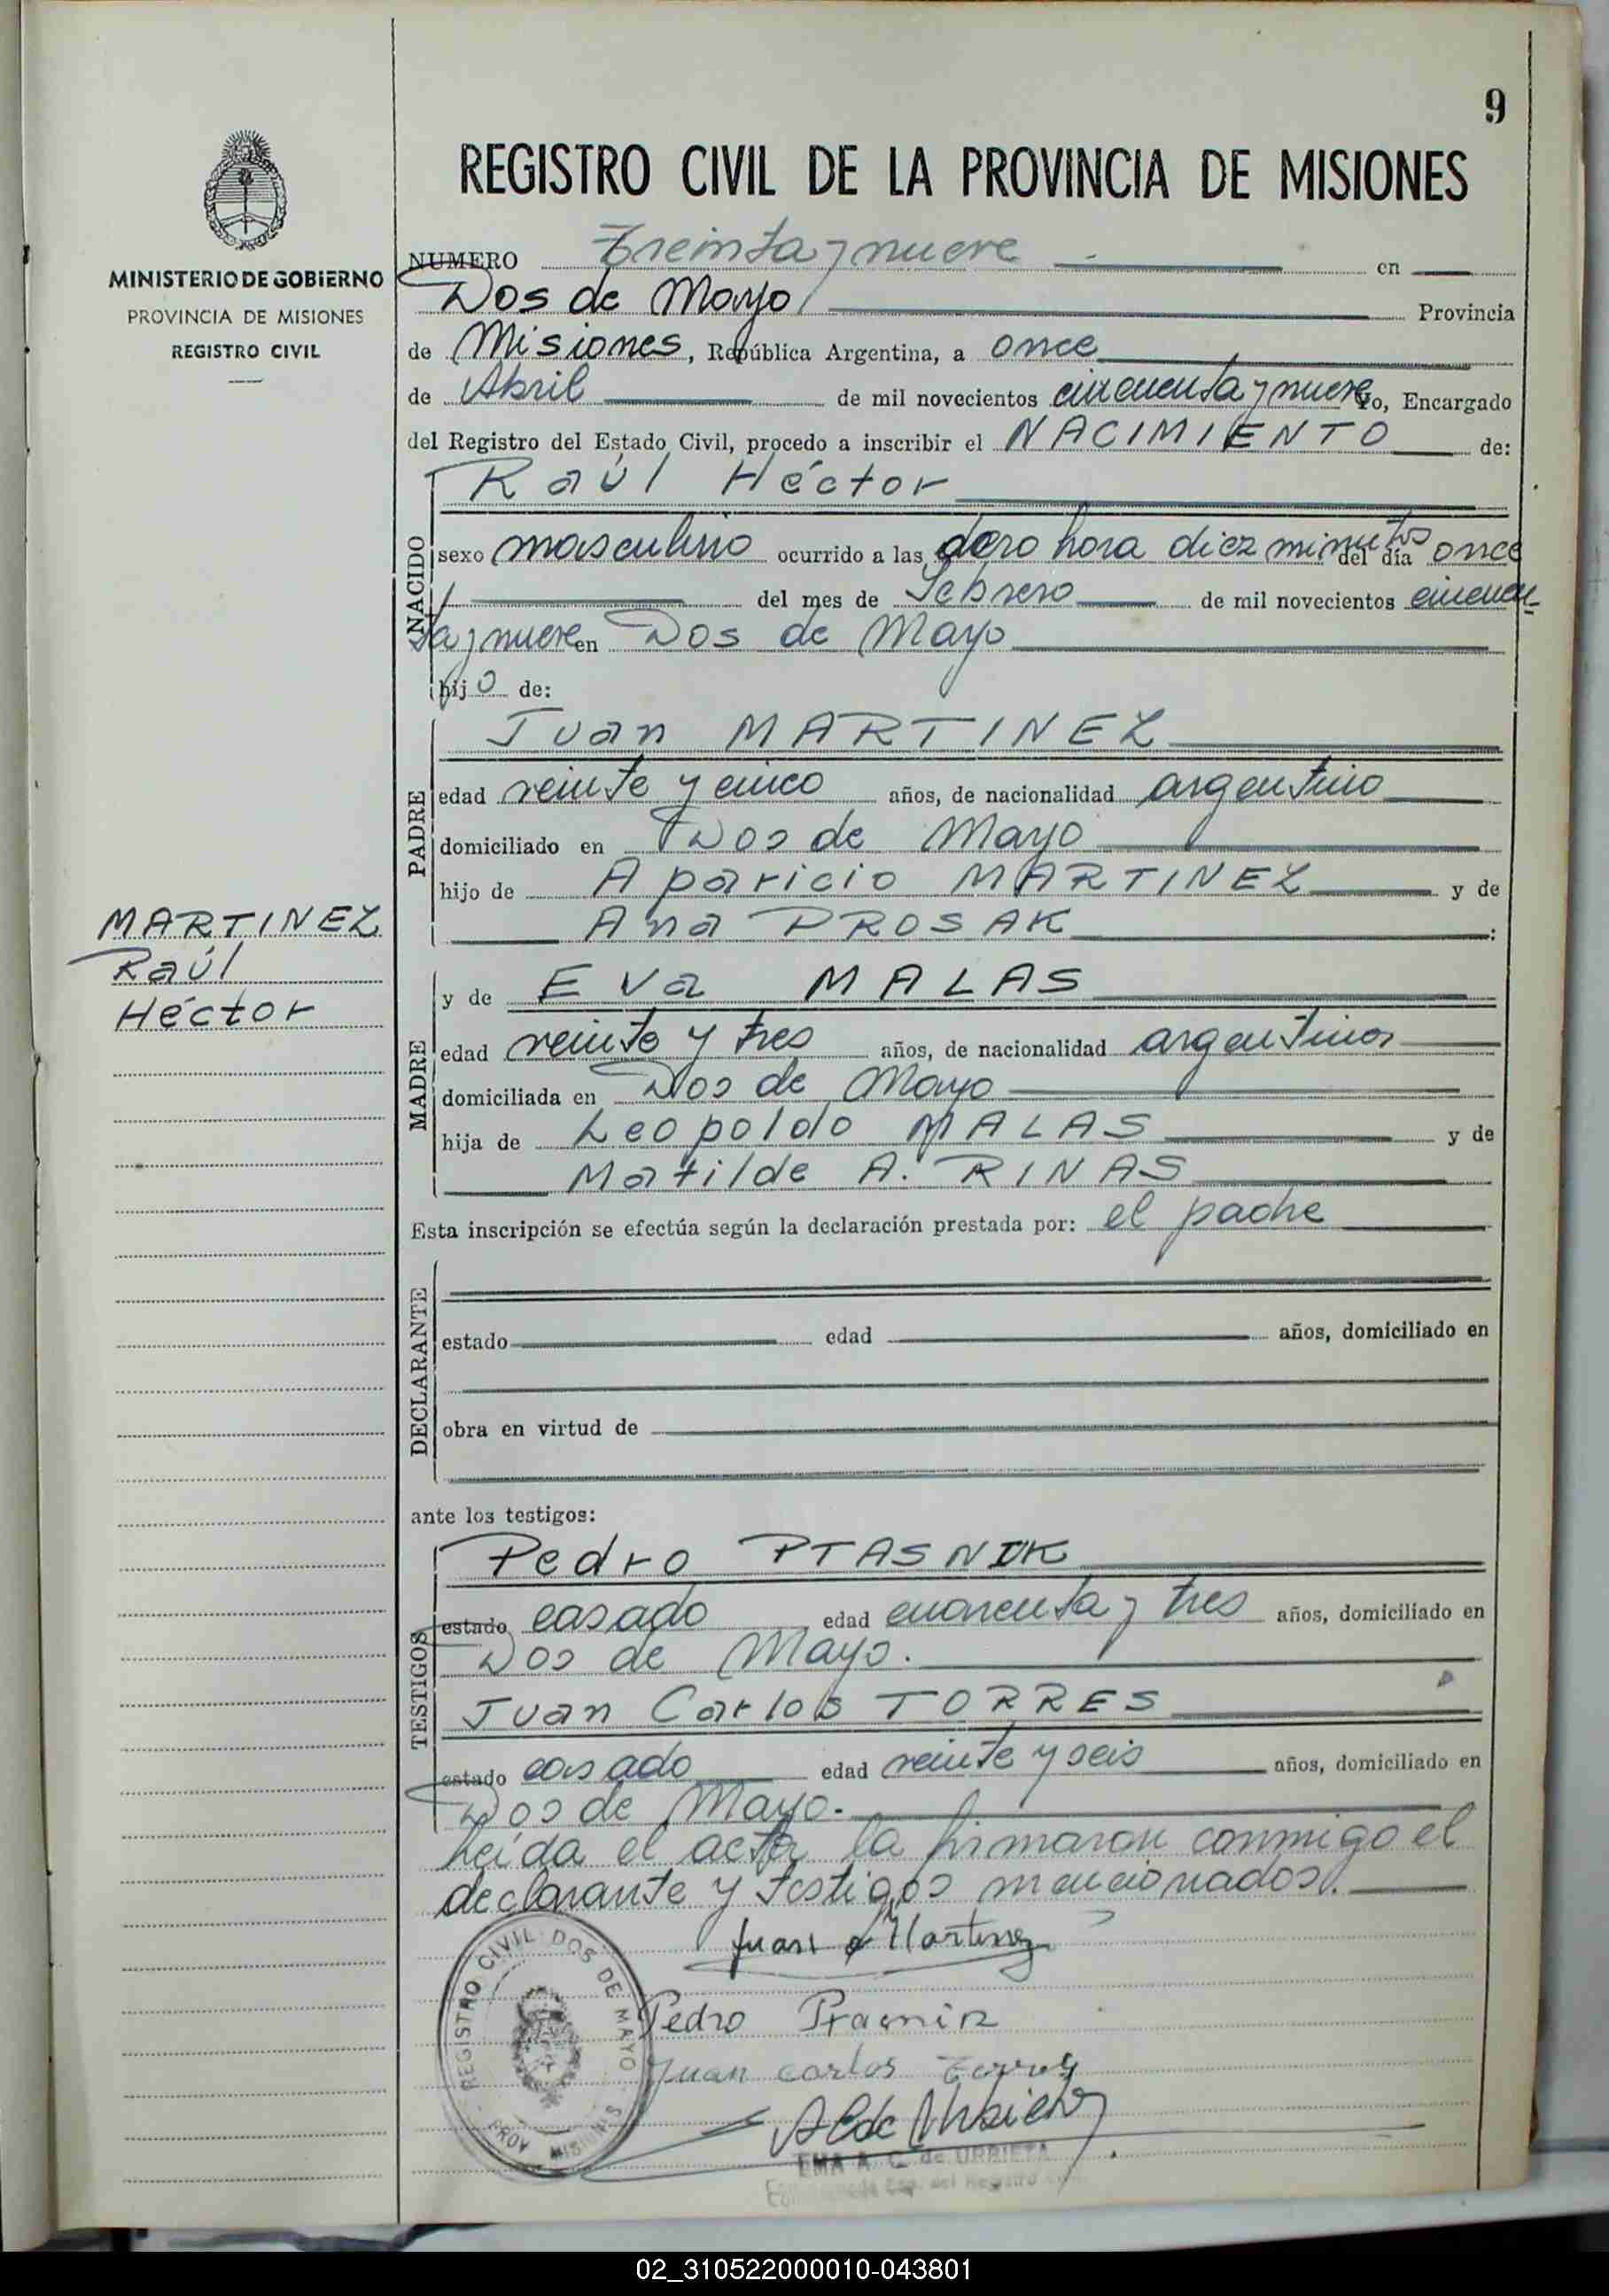 9
REGISTRO CIVIL DE LA PROVINCIA DE MISIONES
MINISTERIO DE GOBIERNO
PROVINCIA DE MISIONES
REGISTRO CIVIL
NUMERO Treinta y nueve en
Dos de Mayo Provincia
de Misiones, República Argentina, a once
de Abril de mil novecientos cincuenta y nueve Yo, Encargado
del Registro del Estado Civil, procedo a inscribir el NACIMIENTO de:
NACIDO
Raúl Héctor
sexo masculino ocurrido a las cero hora diez minutos del día once
del mes de Febrero de mil novecientos cincuen-
ta y nueve en Dos de Mayo
hijo de:
PADRE
Juan MARTINEZ
edad veinte y cinco años, de nacionalidad argentino
domiciliado en Dos de Mayo
hijo de Aparicio MARTINEZ y de
Ana PROSAK:
MARTINEZ
Raúl
Héctor
MADRE
y de Eva MALAS
edad veinte y tres años, de nacionalidad argentina
domiciliada en Dos de Mayo
hija de Leopoldo MALAS y de
Matilde A. RINAS
Esta inscripción se efectúa según la declaración prestada por: el padre
DECLARANTE
estado edad años, domiciliado en
obra en virtud de
ante los testigos:
TESTIGOS
Pedro PTASNIK
estado casado edad cuarenta y tres años, domiciliado en
Dos de Mayo.
Juan Carlos TORRES
estado casado edad veinte y seis años, domiciliado en
Dos de Mayo.-
Leída el acta la firmaron conmigo el
declarante y testigos mencionados.
Juan Martinez
Pedro
Juan carlos Torres
REGISTRO CIVIL DOS DE MAYO
PROV. MISIONES
EMA A. C. de URRIETA
del Registro
02_310522000010-043801